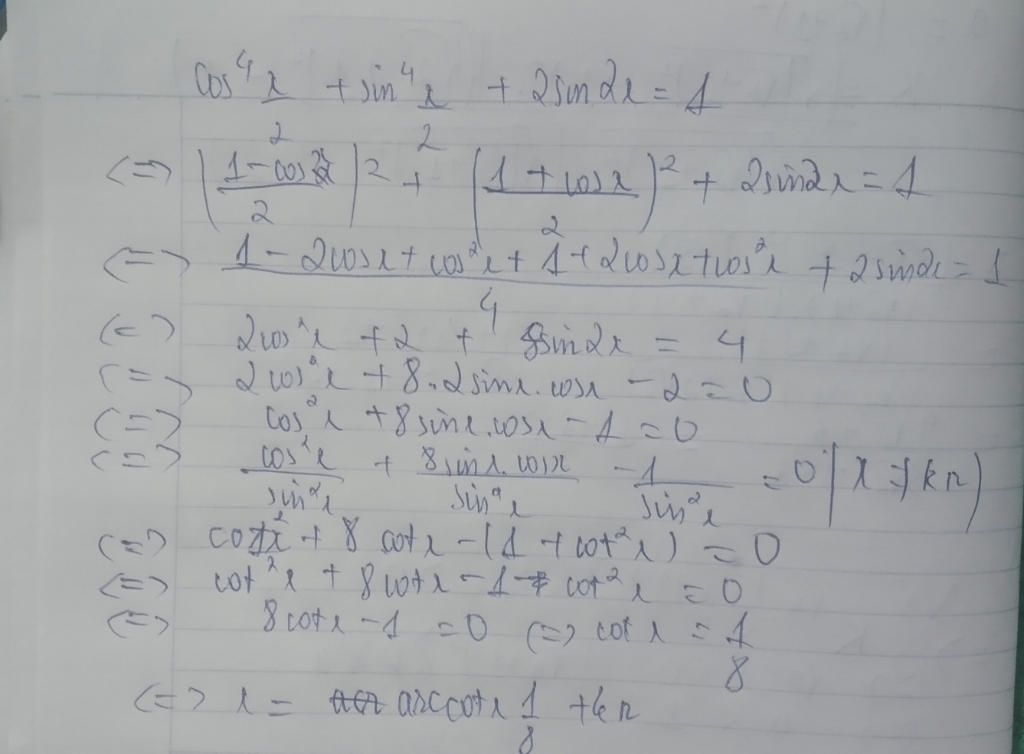 cos⁴ x/2 + sin⁴ x/2 + 2sin2x = 1
<=> (1 - cosx / 2)² + (1 + cosx / 2)² + 2sin2x = 1
<=> 1 - 2cosx + cos²x + 1 + 2cosx + cos²x / 4 + 2sin2x = 1
<=> 2cos²x + 2 + 8sin2x = 4
<=> 2cos²x + 8.2sinx.cosx - 2 = 0
<=> cos²x + 8sinx.cosx - 1 = 0
<=> cos²x / sin²x + 8sinx.cosx / sin²x - 1 / sin²x = 0 (x ≠ kπ)
<=> cot²x + 8cotx - (1 + cot²x) = 0
<=> cot²x + 8cotx - 1 - cot²x = 0
<=> 8cotx - 1 = 0 <=> cotx = 1/8
<=> x = arccotx 1/8 + kπ